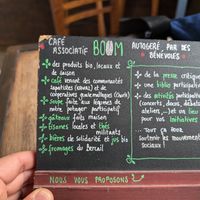 CAFÉ
ASSOCIATIF BOOM
des produits bio, locaux et
de saison
café venant des communautés
zapatistes (rebelles) et de
coopératives guatémaltèques
soupe faite aux légumes de
notre potager participatif
gâteaux faits maison
tisanes locales et thés
militants
bières de solidarité et jus bio
fromages du Vercuil
AUTOGÉRÉ PAR DES
BÉNÉVOLES
de la presse critique
une biblio participative
des activités participatives
(concerts, docus, débats,
ateliers,...) et un lieu
pour vos initiatives
Tout ça pour
soutenir les mouvements
sociaux !
NOUS VOUS PROPOSONS